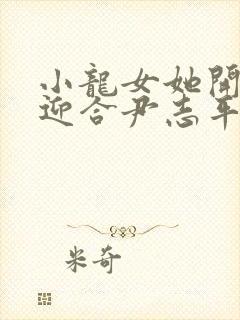 小龍女她開
迎合尹志平
米奇